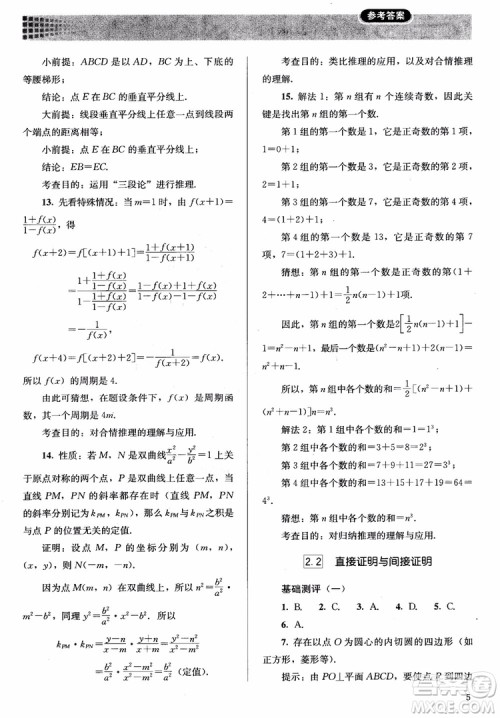 参考答案
小前提：ABCD 是以 AD，BC 为上、下底的
等腰梯形；
结论：点 E 在 BC 的垂直平分线上.
大前提：线段垂直平分线上任意一点到线段两
个端点的距离相等；
小前提：点 E 在 BC 的垂直平分线上；
结论：EB=EC.
考查目的：运用“三段论”进行推理.
13. 先看特殊情况：当 m=1 时，f(x+1)=
\frac{1+f(x)}{1-f(x)}，得
f(x+2)=f[(x+1)+1]=\frac{1+f(x+1)}{1-f(x+1)}
=\frac{1+\frac{1+f(x)}{1-f(x)}}{1-\frac{1+f(x)}{1-f(x)}}
=-\frac{1}{f(x)}.
f(x+4)=f[(x+2)+2]=-\frac{1}{f(x+2)}=f(x).
所以 f(x) 的周期是 4.
由此可猜想，在题设条件下，f(x) 的周期是 4m.
考查目的：对合情推理的理解与应用.
14. 性质：若 M，N 是双曲线\frac{x²}{a²}-\frac{y²}{b²}=1 上关
于原点对称的两个点，点 P 是双曲线上任意一点，
当直线 PM，PN 的斜率都存在时（直线 PM，PN
的斜率分别记为 k_{PM}，k_{PN}），那么 k_{PM} 与 k_{PN} 之积
是与点 P 位置无关的定值.
证明：设点 M，P 的坐标分别为(m，n)，(x，y)，
则 N(-m，-n).
因为点 M 在双曲线上，所以 n²=\frac{b²}{a²}m²-b².
同理 y²=\frac{b²}{a²}x²-b².
所以
k_{PM}·k_{PN}=\frac{y-n}{x-m}·\frac{y+n}{x+m}=\frac{y²-n²}{x²-m²}=\frac{b²}{a²}·
\frac{x²-m²}{x²-m²}=\frac{b²}{a²}（定值）.
考查目的：类比推理的应用，以及对合情推理
的理解.
15. 解法 1：第 n 组有 n 个连续奇数，因此关
键是找出第 n 组的第一个数.
第 1 组的第一个数是 1，它是正奇数的第 1 项，
1=0+1；
第 2 组的第一个数是 3，它是正奇数的第 2 项，
2=1+1；
第 3 组的第一个数是 7，它是正奇数的第 4 项，
4=1+2+1；
第 4 组的第一个数是 13，它是正奇数的第 7
项，7=1+2+3+1；
猜想：第 n 组的第一个数是正奇数的第(1+
2+…+n-1+1)=\frac{1}{2}n(n-1)+1 项.
因此，第 n 组的第一个数是 2[\frac{1}{2}n(n-1)+1]-
1=n²-n+1，最后一个数是 n²-n+1+2(n-1)=
n²+n-1，所以第 n 组中各个数的和=\frac{1}{2}n(n²-
n+1+n²+n-1)=n³.
解法 2：第 1 组中各个数的和=1=1³；
第 2 组中各个数的和=3+5=8=2³；
第 3 组中各个数的和=7+9+11=27=3³；
第 4 组中各个数的和=13+15+17+19=64=4³；
猜想：第 n 组中各个数的和=n³.
考查目的：对归纳推理的理解与应用.
2.2 直接证明与间接证明
基础测评（一）
1. B. 2. A. 3. C. 4. B. 5. C.
6. A.
7. 存在以点 O 为圆心的内切圆的四边形（如
正方形，菱形等）.
提示：由 PO⊥平面 ABCD，要使点 P 到底面
5